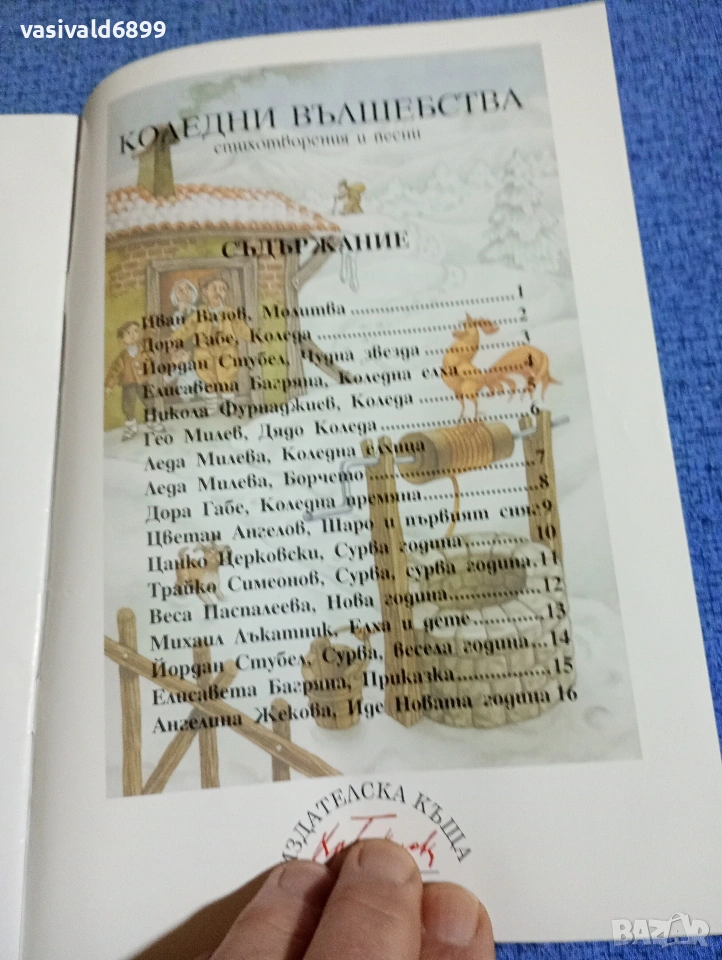 vasivald6899
КОЛЕДНИ ВЪЛШЕБСТВА
стихотворения и песни
СЪДЪРЖАНИЕ
Иван Вазов, Молитва ........................ 1
Дора Габе, Коледа ........................ 2
Йордан Стубел, Чудна звезда ............ 3
Елисавета Багряна, Коледна елха ........ 4
Никола Фурнаджиев, Коледа ............ 5
Гео Милев, Дядо Коледа .................. 6
Леда Милева, Коледна елхица
Леда Милева, Борчето .................... 7
Дора Габе, Коледна премяна ............ 8
Цветан Ангелов, Шаро и първият сняг 9
Цанко Церковски, Сурва година ........ 10
Трайко Симеонов, Сурва, сурва година. 11
Веса Паспалеева, Нова година ............ 12
Михаил Лъкатник, Елха и дете .......... 13
Йордан Стубел, Сурва, весела година .... 14
Елисавета Багряна, Приказка ............ 15
Ангелина Жекова, Иде Новата година 16
ИЗДАТЕЛСКА КЪЩА
BAZAR